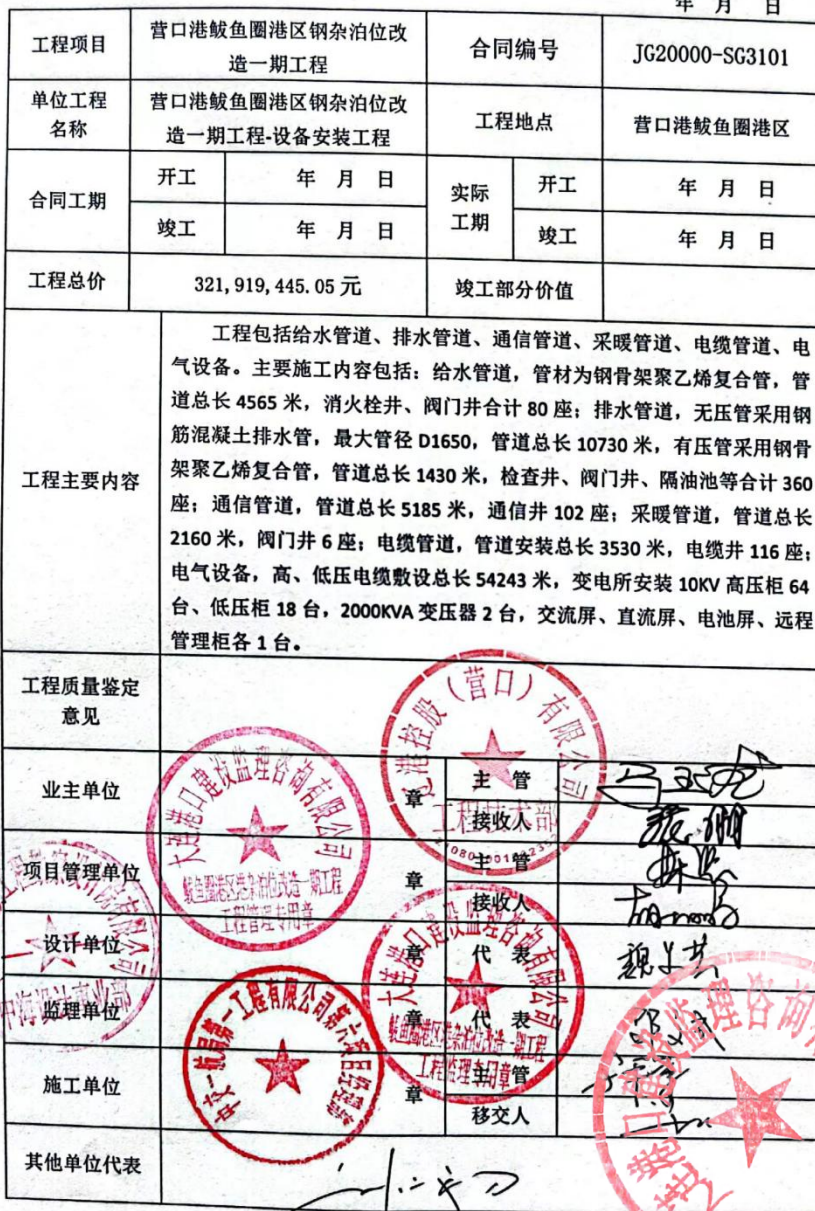 年 月 日
工程项目 营口港鲅鱼圈港区钢杂泊位改 合同编号 JG20000-SG3101
造一期工程
单位工程 营口港鲅鱼圈港区钢杂泊位改 工程地点 营口港鲅鱼圈港区
名称 造一期工程-设备安装工程
合同工期 开工 年 月 日 实际 开工 年 月 日
竣工 年 月 日 工期 竣工 年 月 日
工程总价 321,919,445.05 元 竣工部分价值
工程主要内容
工程包括给水管道、排水管道、通信管道、采暖管道、电缆管道、电
气设备。主要施工内容包括：给水管道，管材为钢骨架聚乙烯复合管，管
道总长 4565 米，消火栓井、阀门井合计 80 座；排水管道，无压管采用钢
筋混凝土排水管，最大管径 D1650，管道总长 10730 米，有压管采用钢骨
架聚乙烯复合管，管道总长 1430 米，检查井、阀门井、隔油池等合计 360
座；通信管道，管道总长 5185 米，通信井 102 座；采暖管道，管道总长
2160 米，阀门井 6 座；电缆管道，管道安装总长 3530 米，电缆井 116 座；
电气设备，高、低压电缆敷设总长 54243 米，变电所安装 10KV 高压柜 64
台、低压柜 18 台，2000KVA 变压器 2 台，交流屏、直流屏、电池屏、远程
管理柜各 1 台。
工程质量鉴定
意见
业主单位 章 主 管
接收人
项目管理单位 章 主 管
接收人
设计单位 章 代 表
监理单位 章 代 表
施工单位 章 主 管
移交人
其他单位代表
港控股（营口）有限公司
工程技术部
大连港口建设监理咨询有限公司
鲅鱼圈港区钢杂泊位改造一期工程
工程管理专用章
大连港口建设监理咨询有限公司
鲅鱼圈港区钢杂泊位改造一期工程
工程监理专用章
中交一航局第一工程有限公司第六项目经理部
港口建设监理咨询